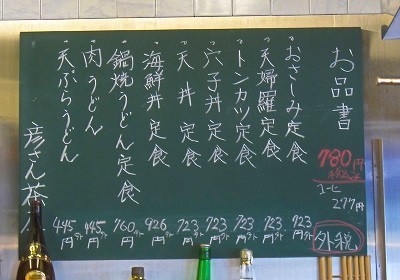 お品書
780円
税込
コーヒ
277円
外税
・おさしみ定食 723円外
・天婦羅定食 723円外
・トンカツ定食 723円外
・穴子丼定食 723円外
・天丼定食 723円外
・海鮮丼定食 926円外
・鍋焼うどん定食 760円外
・肉うどん 445円外
・天ぷらうどん 445円外
彦さん茶屋